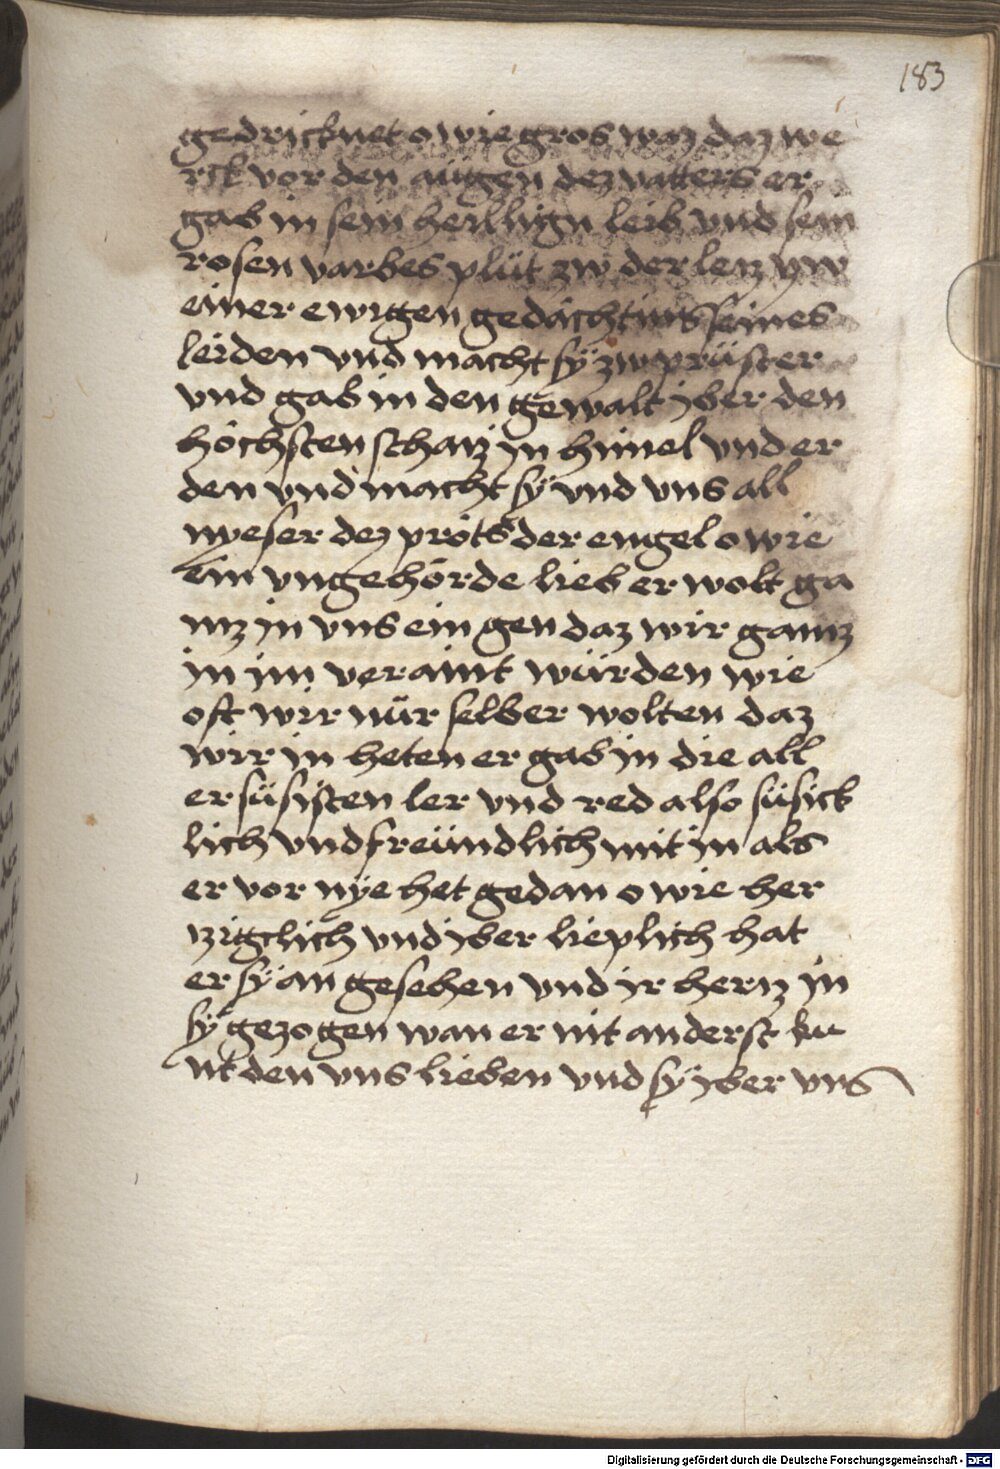 183
gedricknet o wie gros waz daz we
rck vor den aügen dez vatters er
gab in sein heillign leib vnd sein
rosen varbes plüt zw der lecz vn
einer ewigen gedächtnus seines
leiden vnd macht sÿ zw prüster
vnd gab in den gewalt jber den
höchsten schacz jn himel vnd er
den vnd macht sÿ vnd vns all
nyeser dez prots der engel o wie
ein vngehörde lieb er wolt ga
ncz jn vns ein gen daz wir gancz
in im veraint würden wie
oft wir nür selber wolten daz
wir in heten er gab in die all
er süsisten ler vnd red also süsick
lich vnd freündlich mit in als
er vor nÿe het gedan o wie her
czigclich vnd jber lieplich hat
er sÿ an gesehen vnd jr hercz in
sÿ gezogen wan er nit anderst ku
nt den vns lieben vnd sÿ jber vns
Digitalisierung gefördert durch die Deutsche Forschungsgemeinschaft - DFG